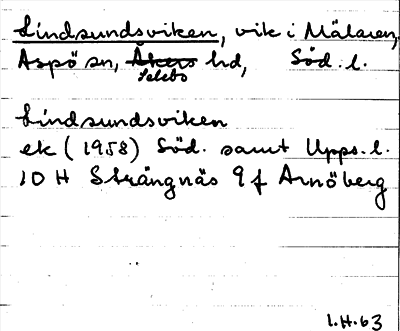 Lindsundsviken, vik i Mälaren,
Aspö sn, Åkers hd, Söd. l.
Selebo
Lindsundsviken
ek (1958) Söd. samt Upps. l.
10 H Strängnäs 9 f Arnöberg
1.H.63